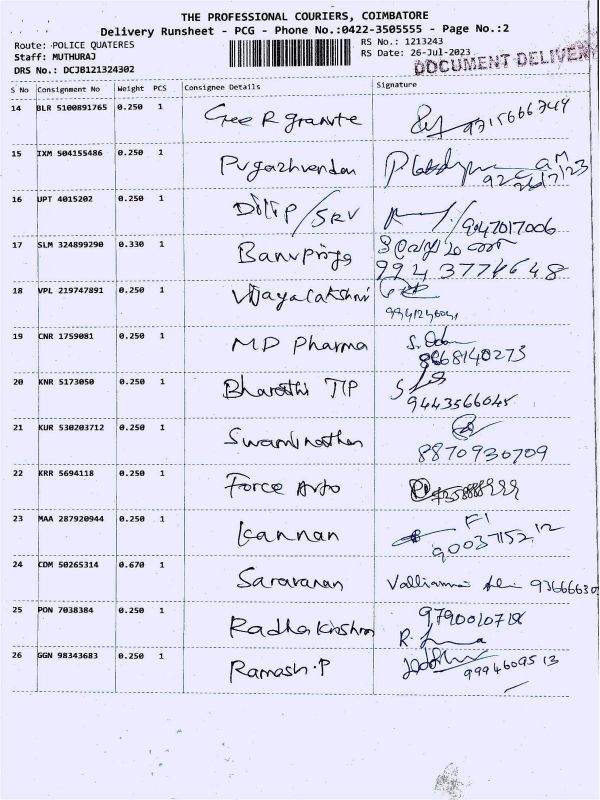 THE PROFESSIONAL COURIERS, COIMBATORE
Delivery Runsheet - PCG - Phone No.:0422-3505555 - Page No.:2
Route: POLICE QUATERES
RS No.: 1213243
Staff: MUTHURAJ
RS Date: 26-Jul-2023
DRS No.: DCJB121324302
DOCUMENT DELIVERY
S No Consignment No Weight PCS Consignee Details Signature
14 BLR 5100891765 0.250 1 Gee R granite
15 IXM 504155486 0.250 1 Pugazhvendan
26/7/23
16 UPT 4015202 0.250 1 Dilip/SRV 9047017006
17 SLM 324899290 0.330 1 Banupriya
9943774648
18 VPL 219747891 0.250 1 Vijayalakshmi
19 CNR 1759081 0.250 1 MD Pharma
8668140273
20 KNR 5173050 0.250 1 Bharathi TIP
9443566045
21 KUR 530203712 0.250 1 Swaminathan
8870930709
22 KRR 5694118 0.250 1 Force Auto
23 MAA 287920944 0.250 1 Kannan
9003715212
24 CDM 50265314 0.670 1 Saravanan Valliammai 93666630
25 PON 7038384 0.250 1 Radha Krishnan
26 GGN 98343683 0.250 1 Ramesh.P 9994609513